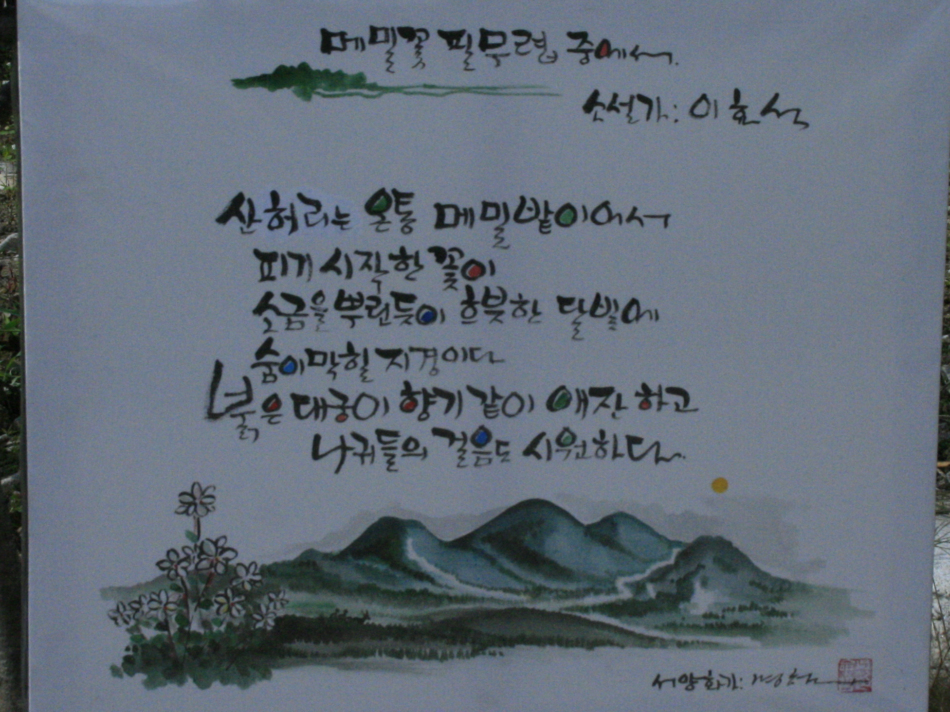 메밀꽃 필무렵 중에서.
소설가: 이효석
산허리는 온통 메밀밭이어서
피기 시작한 꽃이
소금을 뿌린듯이 흐븟한 달빛에
숨이막힐 지경이다
붉은 대궁이 향기같이 애잔하고
나귀들의 걸음도 시원하다.
서양화가: